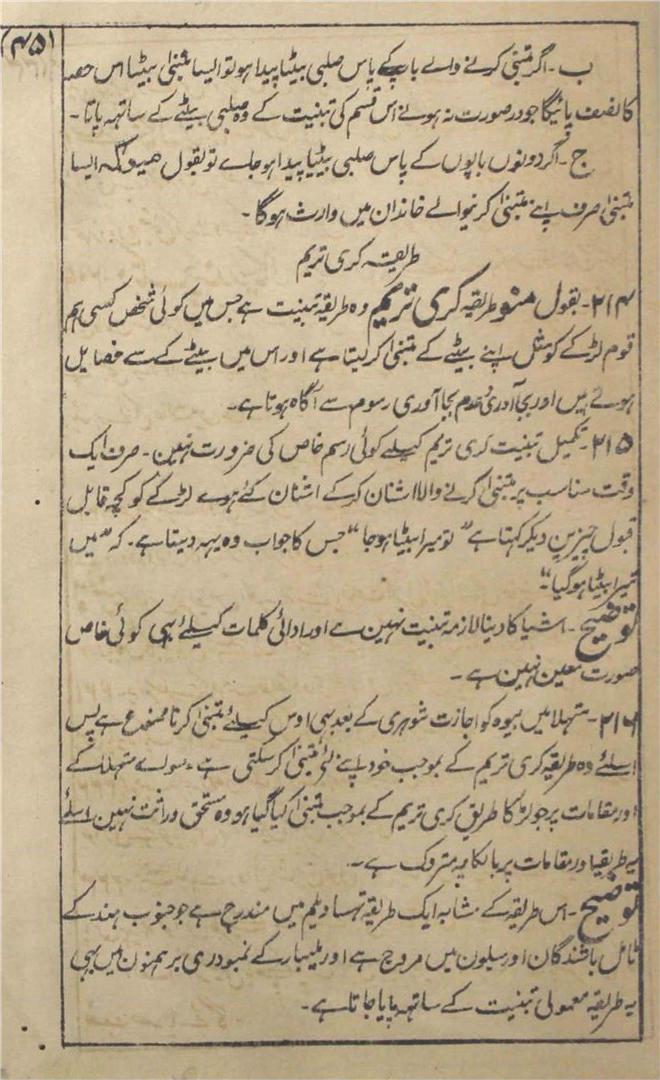 (۴۵)
ب۔ اگر متبنیٰ کرنے والے باپ کے پاس صلبی بیٹا پیدا ہو تو ایسا متبنیٰ بیٹا اس حصہ
کا نصف پائیگا جو درصورت نہ ہونے اس قسم کی تبنیت کے وہ صلبی بیٹے کے ساتھہ پاتا۔
ج۔ اگر دونوں باپوں کے پاس صلبی بیٹا پیدا ہو جاے تو بقول ایسا
متبنیٰ صرف اپنے متبنیٰ کرنیوالے خاندان میں وارث ہوگا۔
طریقہ کری تریم
۲۱۴۔ بقول منو طریقہ کری تریم وہ طریقہ تبنیت ہے جس میں کوئی شخص کسی ہم
قوم لڑکے کو مثل اپنے بیٹے کے متبنیٰ کر لیتا ہے اور اس میں بیٹے کے سے خصایل
ہوتے ہیں اور بجا آوری و عدم بجا آوری رسوم سے آگاہ ہوتا ہے۔
۲۱۵۔ تکمیل تبنیت کری تریم کیلئے کوئی رسم خاص کی ضرورت نہین۔ صرف ایک
وقت مناسب پر متبنیٰ کرنے والا اشنان کرکے اشنان کئے ہوے لڑکے کو کچہ قابل
قبول چیزین دیکر کہتا ہے "تو میرا بیٹا ہو جا" جس کا جواب وہ یہہ دیتا ہے۔ کہ "میں
تیرا بیٹا ہو گیا"
توضیح۔ اشیا کا دینا لازمہ تبنیت نہین ہے اور ادائی کلمات کیلئے بہی کوئی خاص
صورت معین نہین ہے۔
۲۱۶۔ متہلا میں بیوہ کو اجازت شوہری کے بعد بہی اوس کیلئے متبنیٰ کرنا ممنوع ہے پس
اسلئے وہ طریقہ کری تریم کے بموجب خود اپنے لئے متبنیٰ کر سکتی ہے۔ سواے متہلا کے
اور مقامات پر جو لڑکا طریق کری تریم کے بموجب متبنیٰ کیا گیا ہو وہ مستحق وراثت نہین اسلئے
یہ طریقہ اور مقامات پر بالکلیہ متروک ہے۔
توضیح۔ اس طریقہ کے مشابہ ایک طریقہ تہسا ویلیم میں مندرج ہے جو جنوب ہند کے
ٹامل باشندگان اور سیلون میں مروج ہے اور ملیبار کے نمبودری برہمنون میں بہی
یہ طریقہ معمولی تبنیت کے ساتھہ پایا جاتا ہے۔